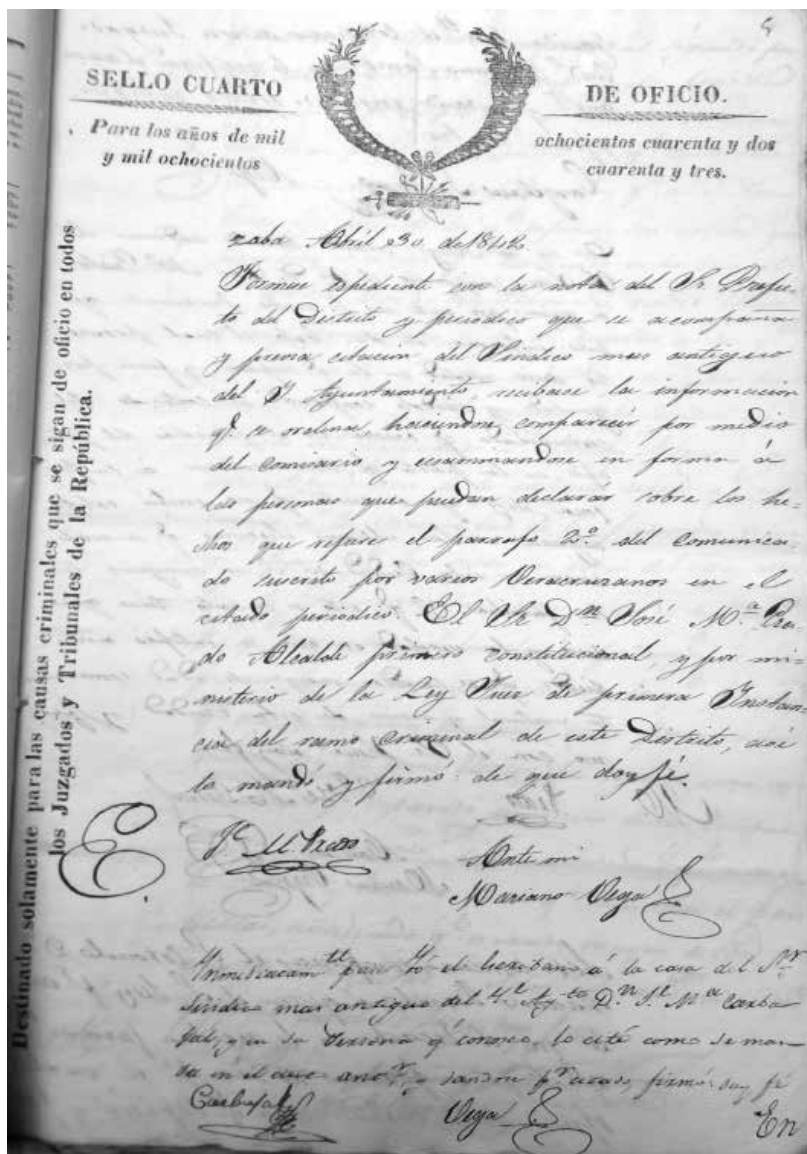 5
SELLO CUARTO
DE OFICIO.
Para los años de mil
y mil ochocientos
ochocientos cuarenta y dos
cuarenta y tres.
Destinado solamente para las causas criminales que se sigan de oficio en todos
los Juzgados y Tribunales de la República.
zaba Abril 30 de 1842.
Formese espediente con la nota del Sr Prefec-
to del Distrito y periodico que se acompaña
y previa citacion del Sindico mas antiguo
del Y. Ayuntamiento, recibase la información
q.e se ordena haciendose comparecer por medio
del comisario y ecsaminandose en forma á
las personas que puedan declarar sobre los he-
chos que refiere el parrafo 2.o del comunica-
do suscrito por varios Veracruzanos en el
citado periodico. El Sr Dn José M.a Pra-
do Alcalde primero constitucional, y por mi-
nisterio de la Ley Juez de primera Instan-
cia del ramo criminal de este Distrito, así
lo mandó y firmó de que doy fé.
J.e M Prado
Ante mi
Mariano Vega
Inmediatam.te pasé Yó el Escribano á la casa del Sr
Sindico mas antiguo del Y.e Ay.to D.n J.e M.a Carba
jal, y en su Persona q.e conosco, lo cité como se man-
da en el auto ant.r, y firmó doy fé
Carbajal
Vega
En